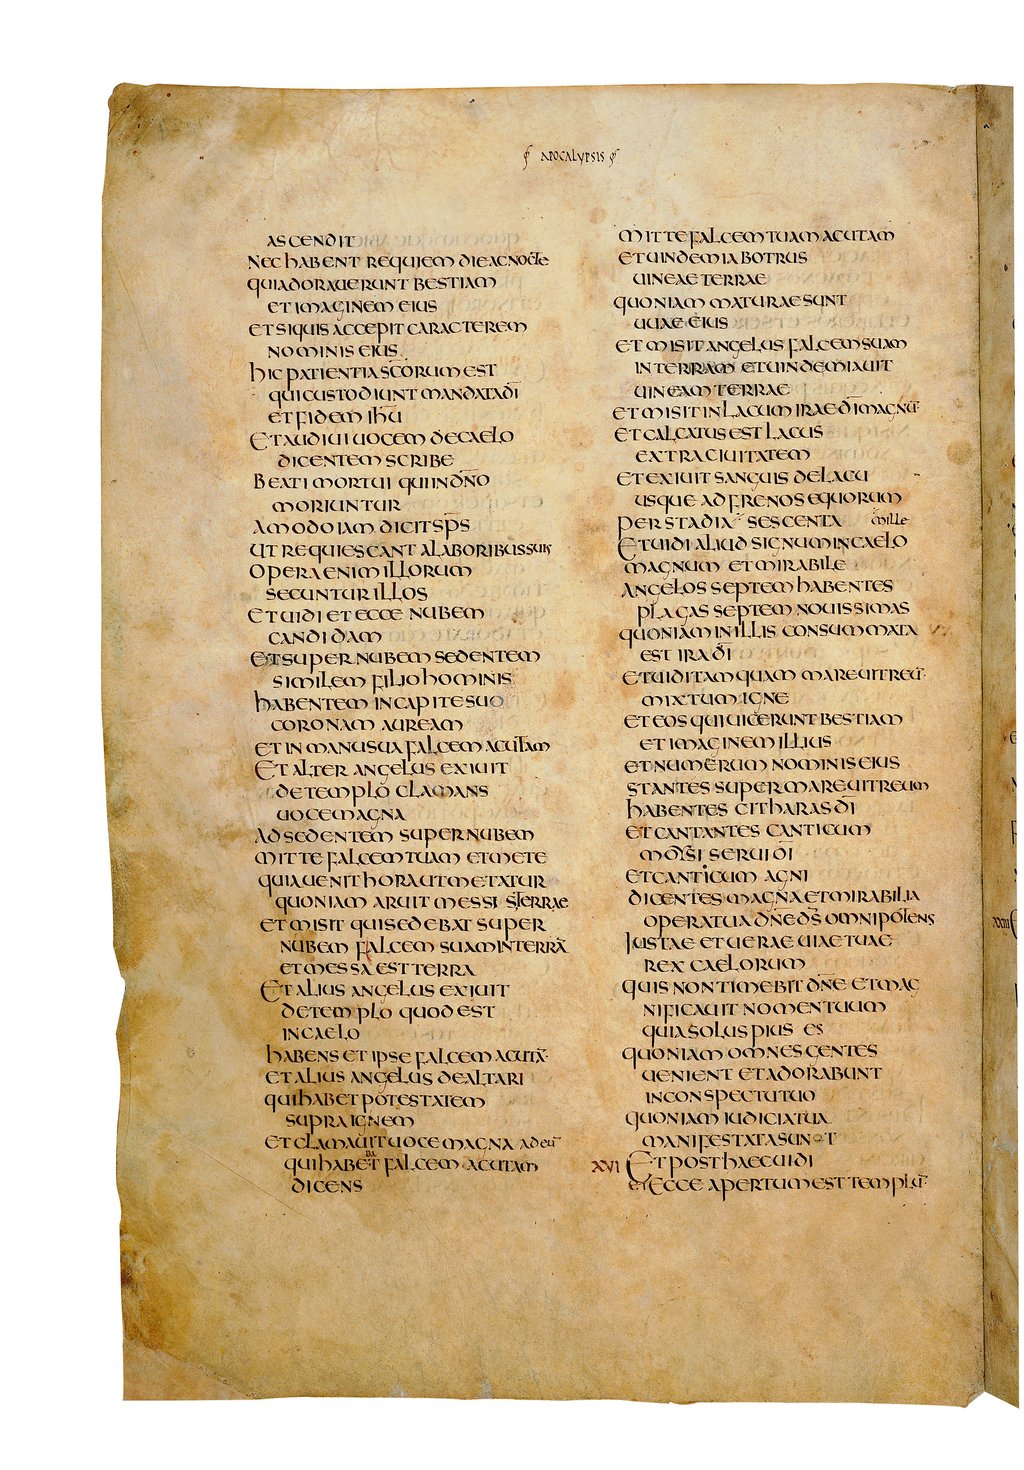 APOCALYPSIS
ASCENDIT
NEC HABENT REQUIEM DIE AC NOCTE
QUI ADORAUERUNT BESTIAM
ET IMAGINEM EIUS
ET SI QUIS ACCEPIT CARACTEREM
NOMINIS EIUS
HIC PATIENTIA SC̅ORUM EST
QUI CUSTODIUNT MANDATA DI̅
ET FIDEM IHU̅
ET AUDIUI UOCEM DE CAELO
DICENTEM SCRIBE
BEATI MORTUI QUI IN DN̅O
MORIUNTUR
AMODO IAM DICIT SP̅S
UT REQUIESCANT A LABORIBUS SUIS
OPERA ENIM ILLORUM
SECUNTUR ILLOS
ET UIDI ET ECCE NUBEM
CANDIDAM
ET SUPER NUBEM SEDENTEM
SIMILEM FILIO HOMINIS
HABENTEM IN CAPITE SUO
CORONAM AUREAM
ET IN MANU SUA FALCEM ACUTAM
ET ALTER ANGELUS EXIUIT
DE TEMPLO CLAMANS
UOCE MAGNA
AD SEDENTEM SUPER NUBEM
MITTE FALCEM TUAM ET METE
QUIA UENIT HORA UT METATUR
QUONIAM ARUIT MESSIS TERRAE
ET MISIT QUI SEDEBAT SUPER
NUBEM FALCEM SUAM IN TERRA̅
ET MESSA EST TERRA
ET ALIUS ANGELUS EXIUIT
DE TEMPLO QUOD EST
IN CAELO
HABENS ET IPSE FALCEM ACUTA̅
ET ALIUS ANGELUS DE ALTARI
QUI HABET POTESTATEM
SUPRA IGNEM
ET CLAMAUIT UOCE MAGNA AD EU̅
QUI HABEBAT FALCEM ACUTAM
DICENS
MITTE FALCEM TUAM ACUTAM
ET UINDEMIA BOTRUS
UINEAE TERRAE
QUONIAM MATURAE SUNT
UUAE EIUS
ET MISIT ANGELUS FALCEM SUAM
IN TERRAM ET UINDEMIAUIT
UINEAM TERRAE
ET MISIT IN LACUM IRAE DI̅ MAGNU̅
ET CALCATUS EST LACUS
EXTRA CIUITATEM
ET EXIUIT SANGUIS DE LACU
USQUE AD FRENOS EQUORUM
PER STADIA SESCENTA MILLE
ET UIDI ALIUD SIGNUM IN CAELO
MAGNUM ET MIRABILE
ANGELOS SEPTEM HABENTES
PLAGAS SEPTEM NOUISSIMAS
QUONIAM IN ILLIS CONSUMMATA
EST IRA DI̅
ET UIDI TAMQUAM MARE UITREU̅
MIXTUM IGNE
ET EOS QUI UICERUNT BESTIAM
ET IMAGINEM ILLIUS
ET NUMERUM NOMINIS EIUS
STANTES SUPER MARE UITREUM
HABENTES CITHARAS DI̅
ET CANTANTES CANTICUM
MOYSI SERUI DI̅
ET CANTICUM AGNI
DICENTES MAGNA ET MIRABILIA
OPERA TUA DN̅E DS̅ OMNIPOTENS
IUSTAE ET UERAE UIAE TUAE
REX CAELORUM
QUIS NON TIMEBIT DN̅E ET MAG
NIFICAUIT NOMEN TUUM
QUIA SOLUS PIUS ES
QUONIAM OMNES GENTES
UENIENT ET ADORABUNT
IN CONSPECTU TUO
QUONIAM IUDICIA TUA
MANIFESTATA SUNT
XVI ET POST HAEC UIDI
ET ECCE APERTUM EST TEMPLU̅